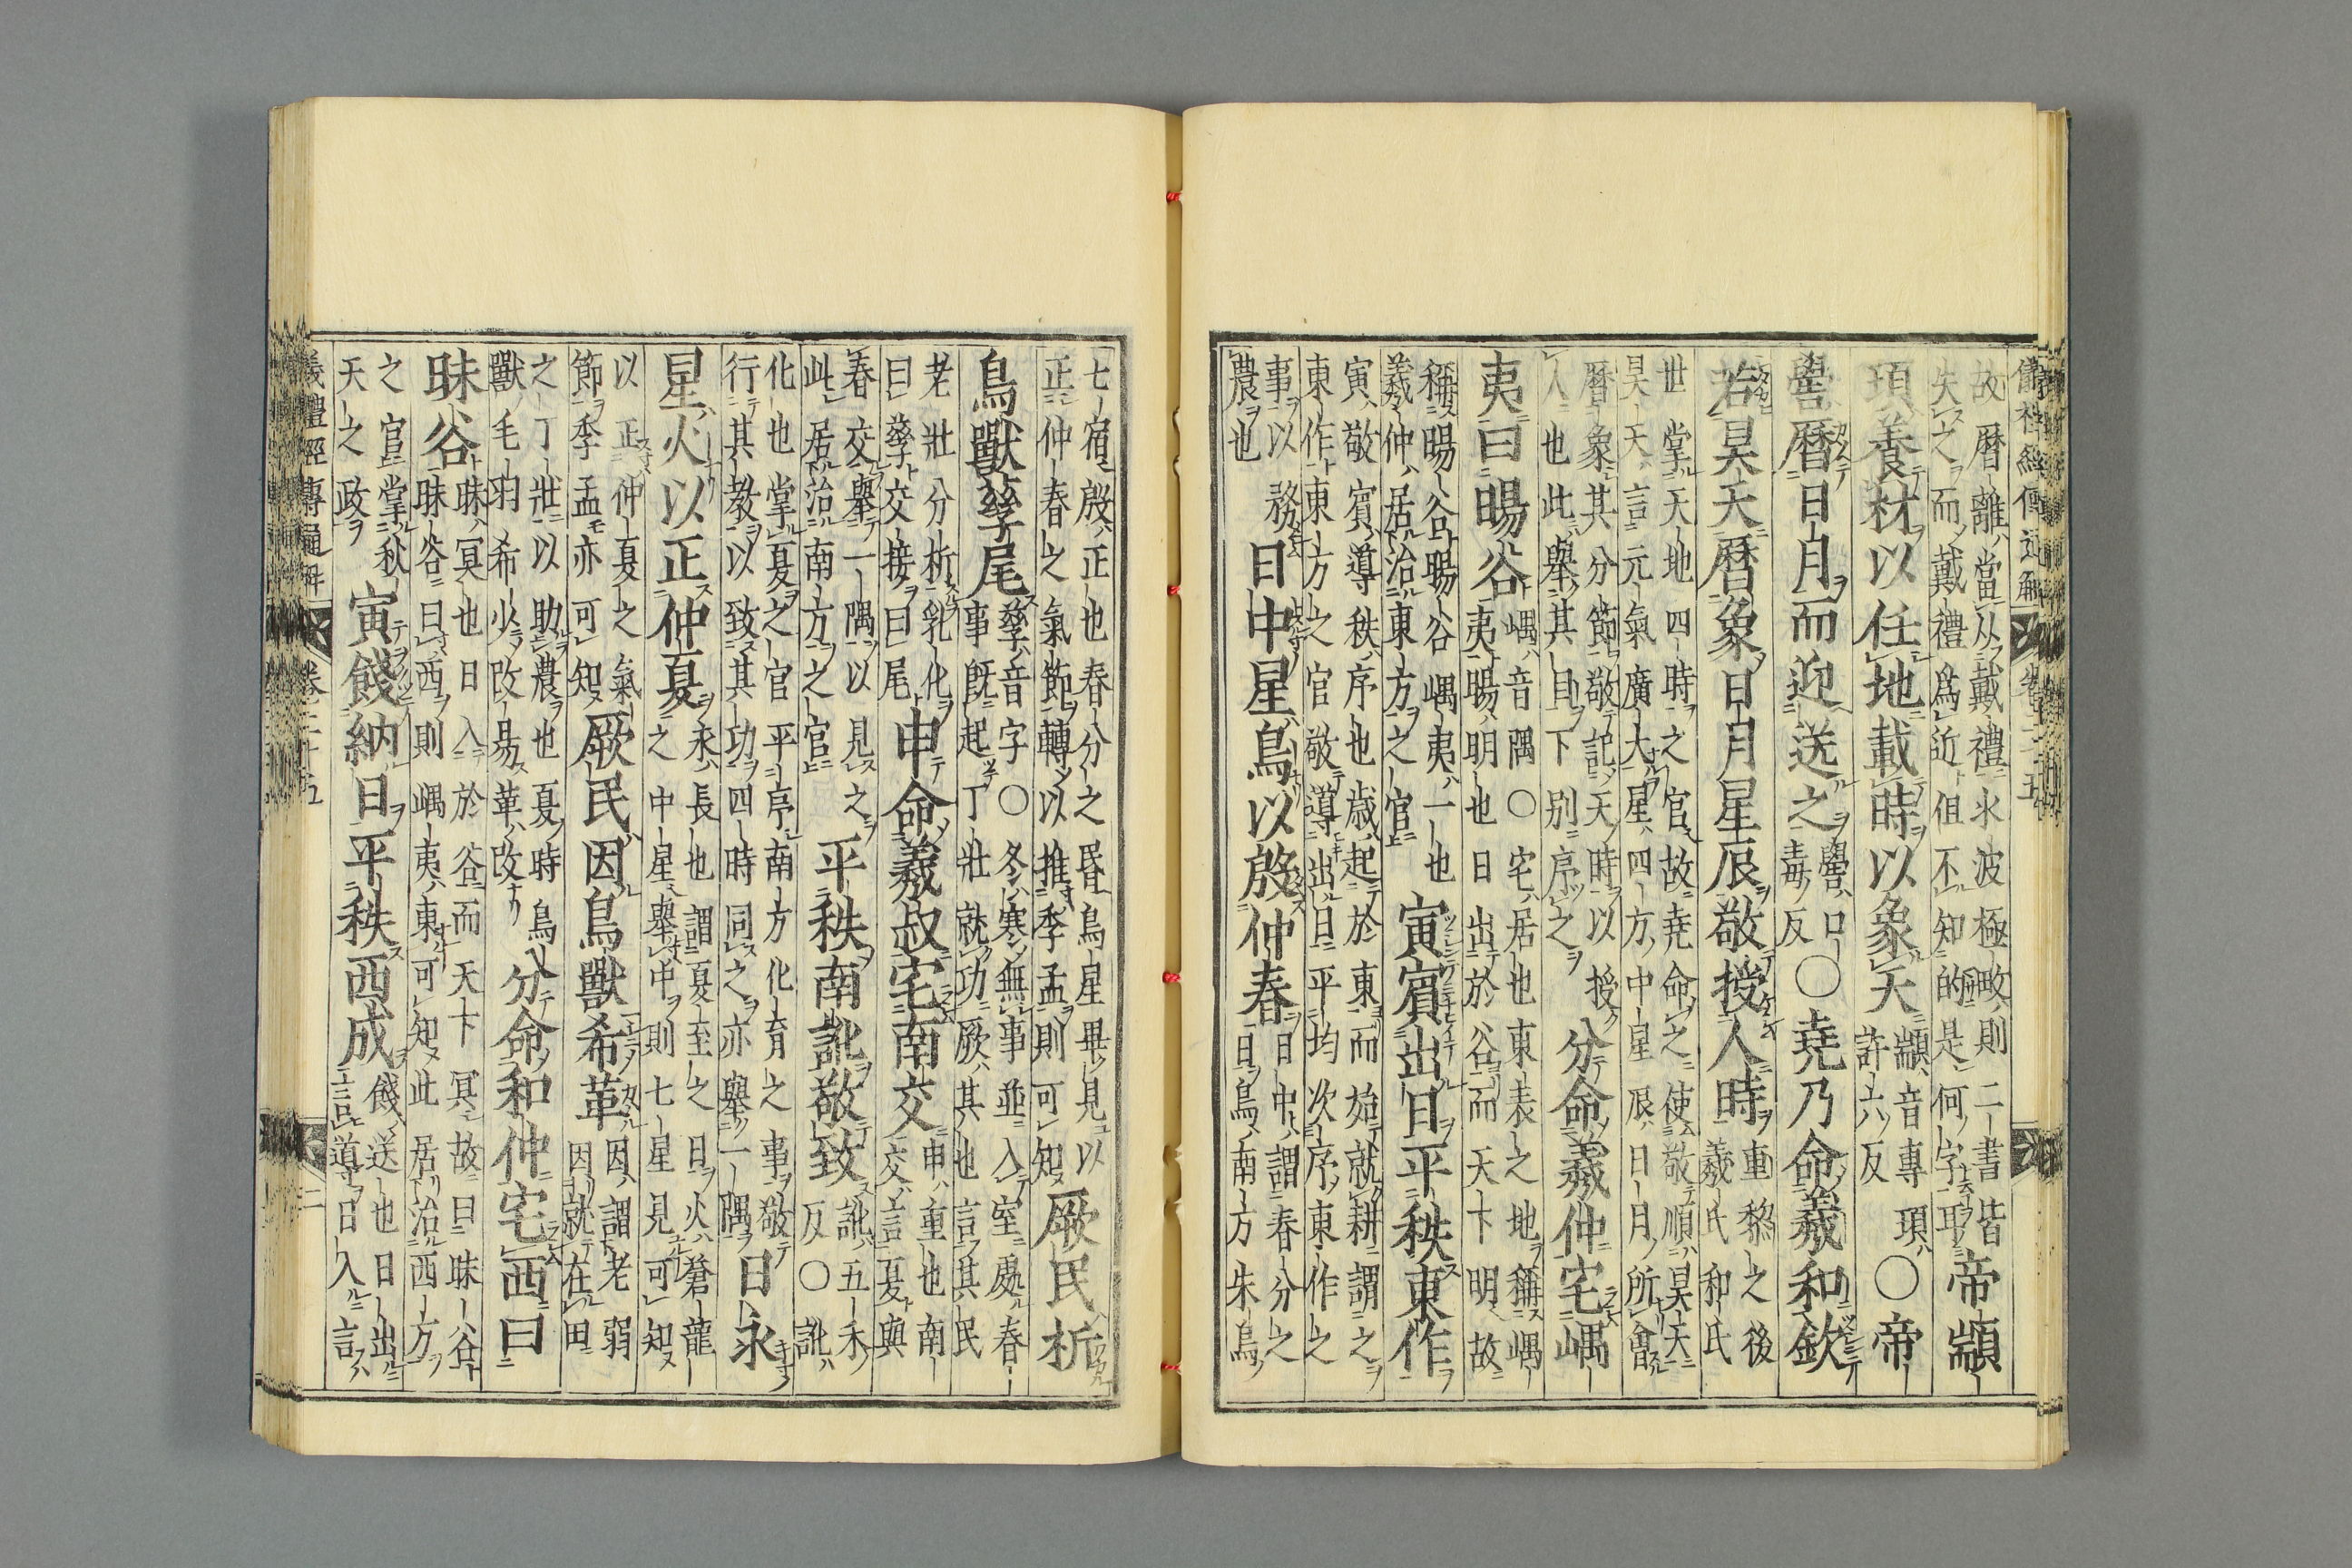 儀禮經傳通解 卷二十五
故曆離當从戴禮氷波極畋則二書皆
失之而戴禮爲近但不知的是何字耳
帝顓
頊養材以任地載時以象天
顓音專頊
許六反
○帝
嚳曆日月而迎送之
嚳口
毒反
○堯乃命羲和欽
若昊天曆象日月星辰敬授人時
重黎之後
羲氏和氏
世掌天地四時之官故堯命之使敬順昊天
昊天言元氣廣大星四方中星辰日月所會
曆象其分節敬記天時以授
人也此舉其目下別序之
分命羲仲宅嵎
夷曰暘谷
嵎音隅○宅居也東表之地稱嵎
夷暘明也日出於谷而天下明故
稱暘谷暘谷嵎夷一也
羲仲居治東方之官
寅賓出日平秩東作
寅敬賓導秩序也歳起於東而始就耕謂之
東作東方之官敬導出日平均次序東作之
事以務
農也
日中星鳥以殷仲春
日中謂春分之
日鳥南方朱鳥
七宿殷正也春分之昏鳥星畢見以
正仲春之氣節轉以推季孟則可知
厥民析
鳥獸孳尾
孳音字○冬寒無事並入室處春
事既起丁壯就功厥其也言其民
老壯分析乳化
曰孳交接曰尾
申命羲叔宅南交
申重也南
交言夏與
春交舉一隅以見之
此居治南方之官
平秩南訛敬致
訛五禾
反○訛
化也掌夏之官平序南方化育之事敬
行其教以致其功四時同之亦舉一隅
日永
星火以正仲夏
永長也謂夏至之日火蒼龍
之中星舉中則七星見可知
以正仲夏之氣
節季孟亦可知
厥民因鳥獸希革
因謂老弱
因就在田
之丁壯以助農也夏時鳥
獸毛羽希少改易革改
分命和仲宅西曰
昧谷
昧冥也日入於谷而天下冥故曰昧谷
昧谷曰西則嵎夷東可知此居治西方
之官掌秋
天之政
寅餞納日平秩西成
餞送也日出
言導日入言
儀禮經傳通解 卷二十五 二